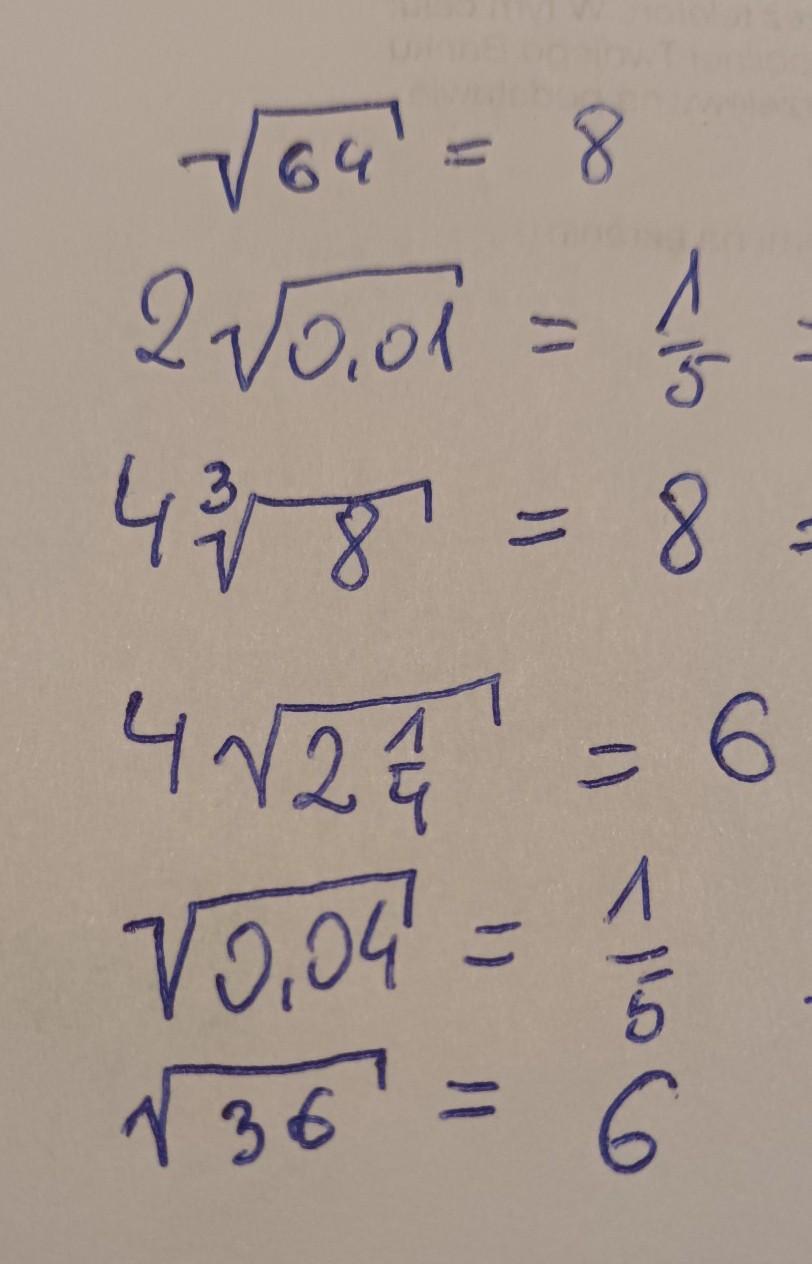 √64 = 8
2√0,01 = 1/5 =
4∛8 = 8 =
4√2 1/4 = 6
√0,04 = 1/5
√36 = 6